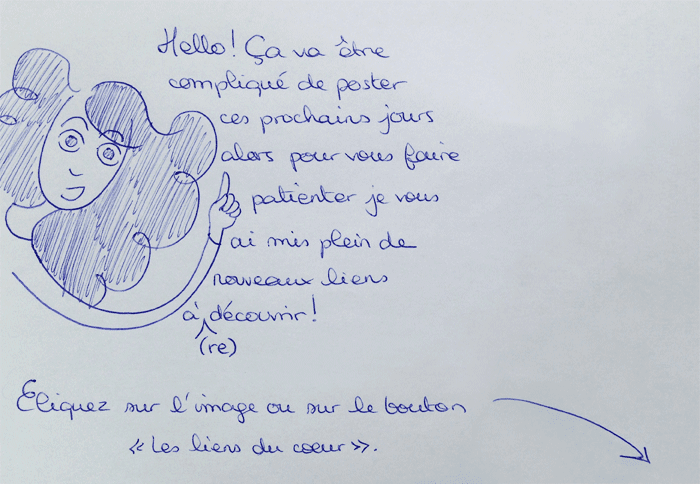 Hello! Ça va être
compliqué de poster
ces prochains jours
alors pour vous faire
patienter je vous
ai mis plein de
nouveaux liens
à découvrir!
(re)
Cliquez sur l'image ou sur le bouton
« Les liens du coeur ».